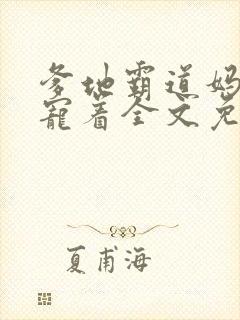 爹地霸道妈
宠着全文免
夏甫海